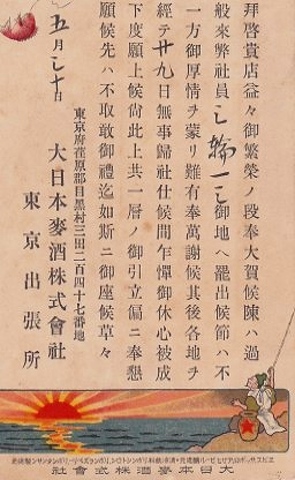 拜啓貴店益々御繁榮ノ段奉大賀候陳ハ過
般來弊社員三輪一三御地ヘ罷出候節ハ不
一方御厚情ヲ蒙リ難有奉萬謝候其後各地ヲ
經テ廿九日無事歸社仕候間乍憚御休心被成
下度願上候尚此上共一層ノ御引立偏ニ奉懇
願候先ハ不取敢御禮迄如斯ニ御座候草々
東京府荏原郡目黑村三田二百四十七番地
五月三十日
大日本麥酒株式會社
東京出張所
大日本麥酒株式會社